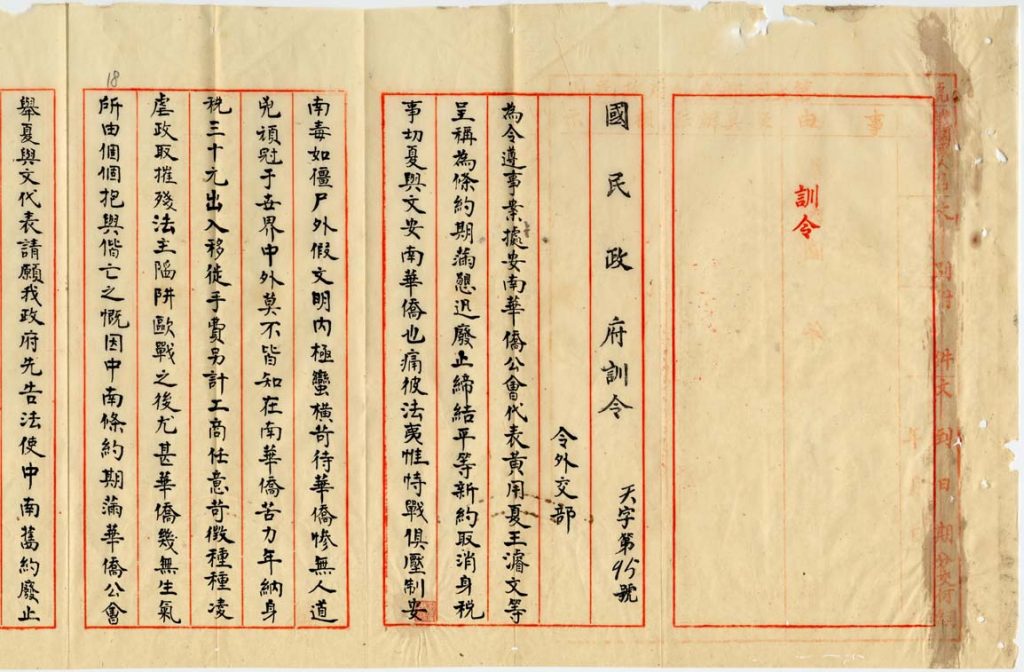 訓令
國民政府訓令
天字第95號
令外交部
為令遵事案據安南華僑公會代表黃用夏王濬文等
呈稱為條約期滿懇迅廢止締結平等新約取消身稅
事切夏與文安南華僑也痛彼法夷惟恃戰俱壓制安
南毒如僵尸外假文明內極蠻橫苛待華僑慘無人道
兇頑冠于世界中外莫不皆知在南華僑苦力年納身
稅三十元出入移徒手費另計工商任意苛徵種種凌
虐政取摧殘法主陷阱歐戰之後尤甚華僑幾無生氣
所由個個抱與偕亡之慨因中南條約期滿華僑公會
18
舉夏與文代表請願我政府先告法使中南舊約廢止